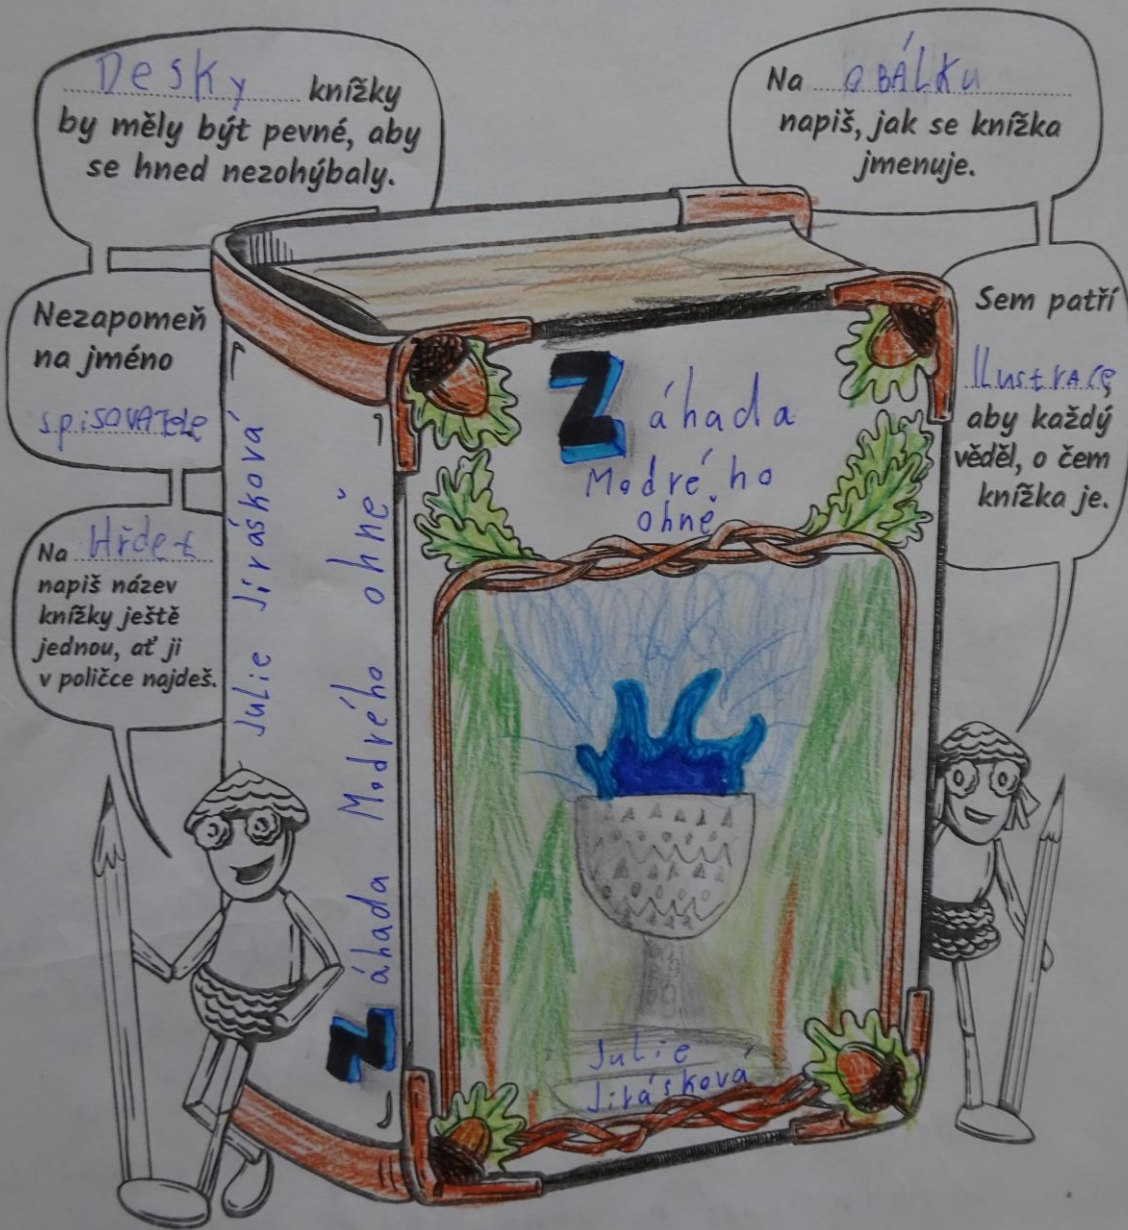 Desky knížky
by měly být pevné, aby
se hned nezohýbaly.
Na OBÁLKU
napiš, jak se knížka
jmenuje.
Nezapomeň
na jméno
spisovatele
Sem patří
Ilustrace,
aby každý
věděl, o čem
knížka je.
Na Hřbet
napiš název
knížky ještě
jednou, ať ji
v poličce najdeš.
Julie Jirásková
Záhada Modrého ohně
Záhada
Modrého
ohně
Julie
Jirásková